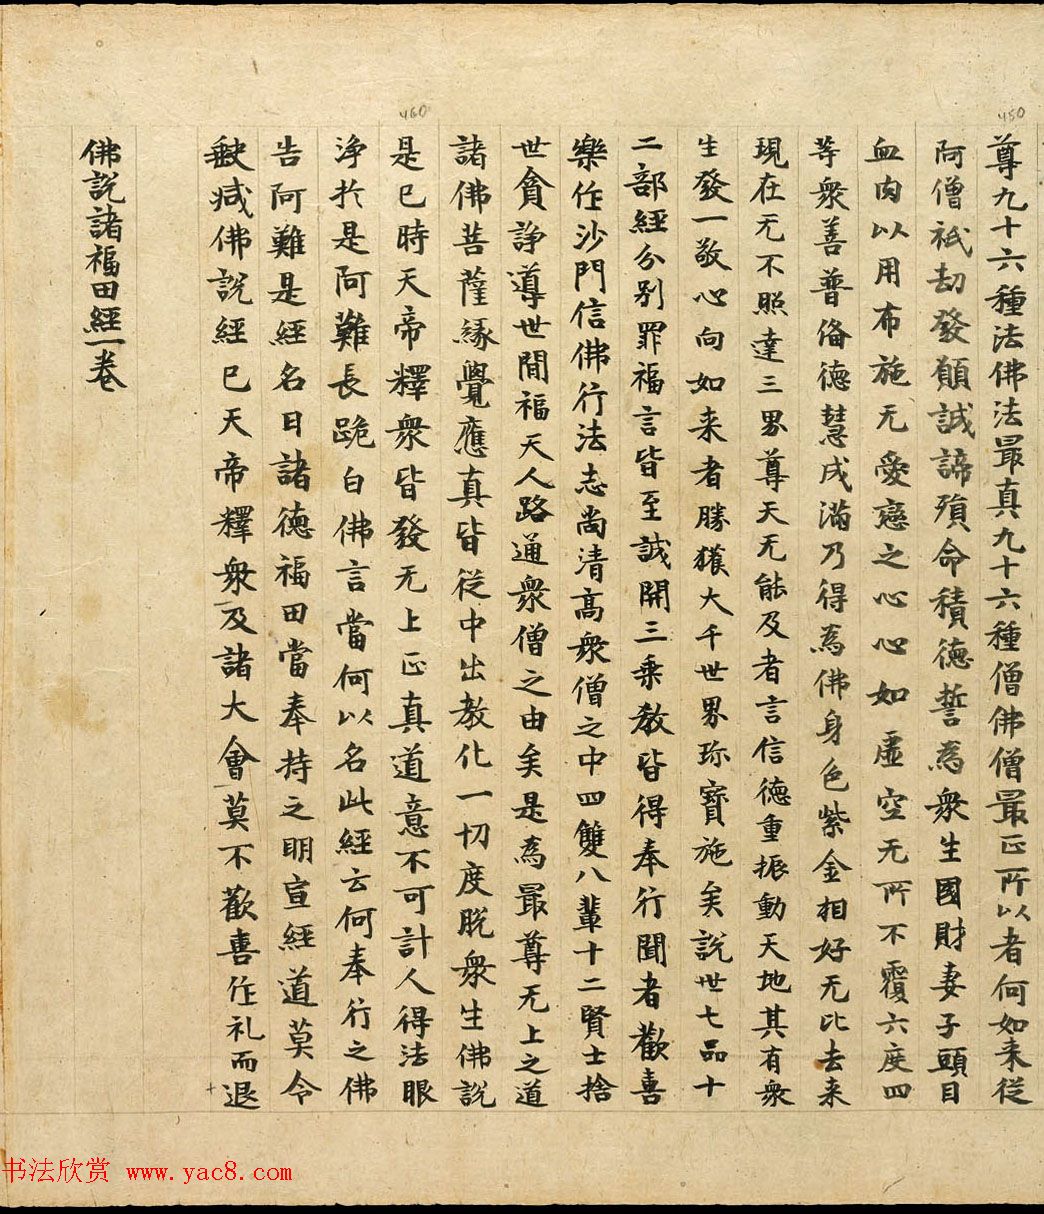 450
460
尊九十六種法佛法最真九十六種僧佛僧最正所以者何如来従
阿僧祇劫發願誠諦殞命積德誓為衆生國財妻子頭目
血肉以用布施无愛戀之心心如虛空无所不覆六度四
等衆善普俻德慧成滿乃得為佛身色紫金相好无比去来
現在无不照達三界尊天无能及者言信德重振動天地其有衆
生發一敬心向如来者勝獲大千世界珎寳施矣説世七品十
二部經分別罪福言皆至誠開三乗教皆得奉行聞者歡喜
樂作沙門信佛行法志尚清高衆僧之中四雙八輩十二賢士捨
世貪諍導世間福天人路通衆僧之由矣是為最尊无上之道
諸佛菩薩緣覺應真皆従中出教化一切度脱衆生佛説
是已時天帝釋衆皆發无上正真道意不可計人得法眼
淨扵是阿難長跪白佛言當何以名此經云何奉行之佛
告阿難是經名曰諸德福田當奉持之明宣經道莫令
缺減佛説經已天帝釋衆及諸大會莫不歡喜作礼而退
佛説諸福田經一卷
书法欣赏 www.yac8.com